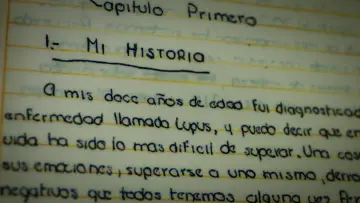 Capitulo Primero
1.- MI HISTORIA
A mis doce años de edad fui diagnosticad
enfermedad llamada lupus, y puedo decir que es
vida ha sido lo mas dificil de superar. Una cos
sus emociones, superarse a uno mismo, derro
negativos que todos tenemos alguna vez